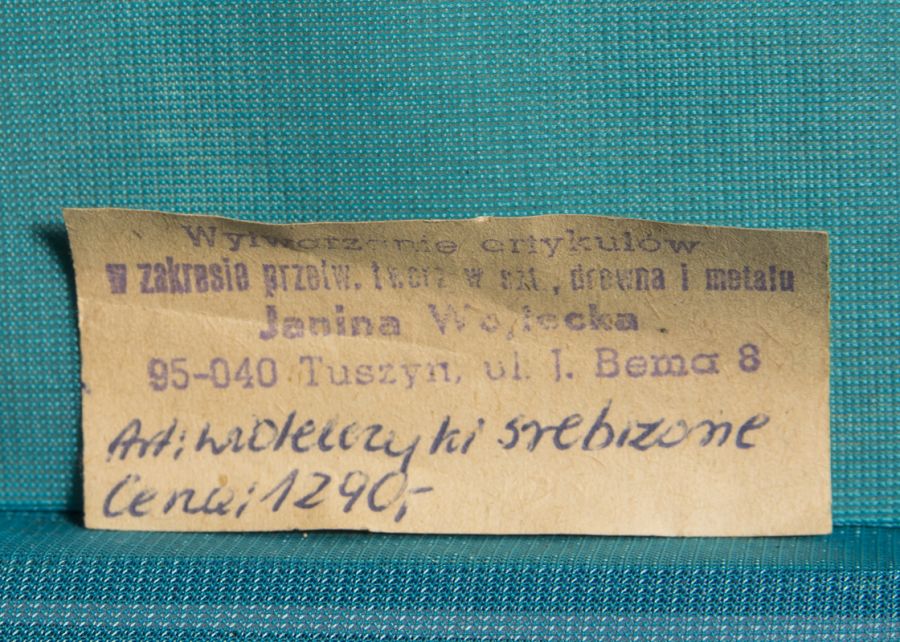 Wytwarzanie artykułów
w zakresie przetw. tworz w szt., drewna i metalu
Janina Wojtecka
95-040 Tuszyn, ul. J. Bema 8
Art: widelczyki srebrzone
Cena: 1290,-